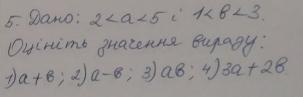 5. Дано: 2<a<5 і 1<в<3.
Оцініть значення виразу:
1) a+в; 2) a-в; 3) aв; 4) 3a+2в.